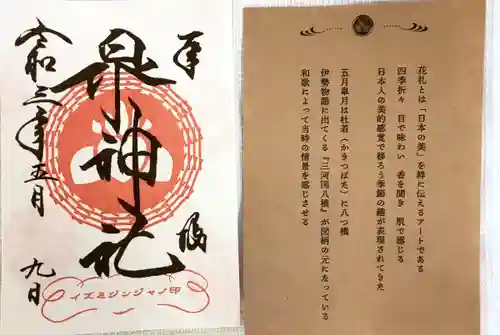 奉拝
泉神社
令和三年五月
九日
イズミジンジャノ印
花札とは「日本の美」を粋に伝えるアートである
四季折々　目で味わい　香を聞き　肌で感じる
日本人の美的感覚で移ろう季節の趣が表現されてきた
五月皐月は杜若(かきつばた)に八つ橋
伊勢物語に出てくる『三河国八橋』が図柄の元になっている
和歌によって当時の情景を感じさせる